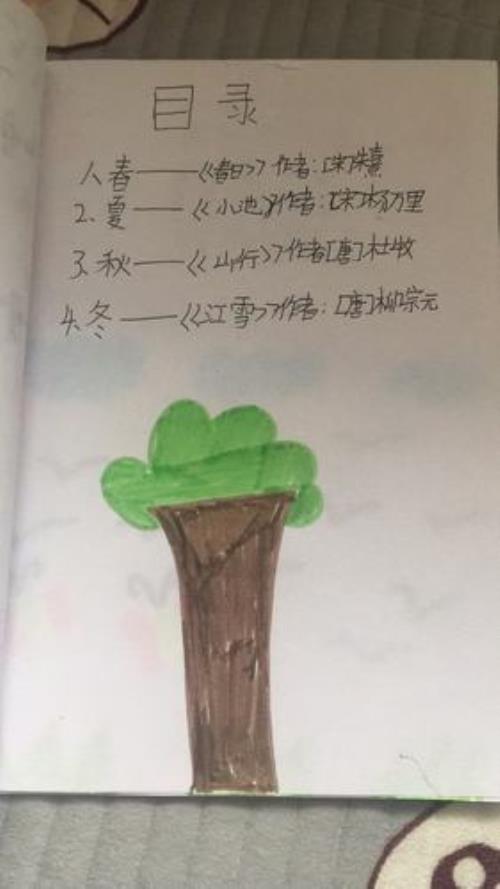 目录
1、春——《春日》作者:[宋]朱熹
2、夏——《小池》作者:[宋]杨万里
3、秋——《山行》作者[唐]杜牧
4、冬——《江雪》作者:[唐]柳宗元